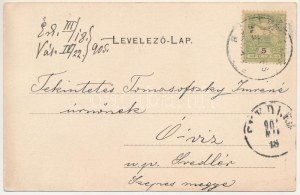 Érk. III/18.
Vál. III/22. 905.
LEVELEZŐ-LAP.
Tekintetes Tomosofszky Imréné
úrnőnek
Ó-viz
u. p. Svedlér
Szepes megye